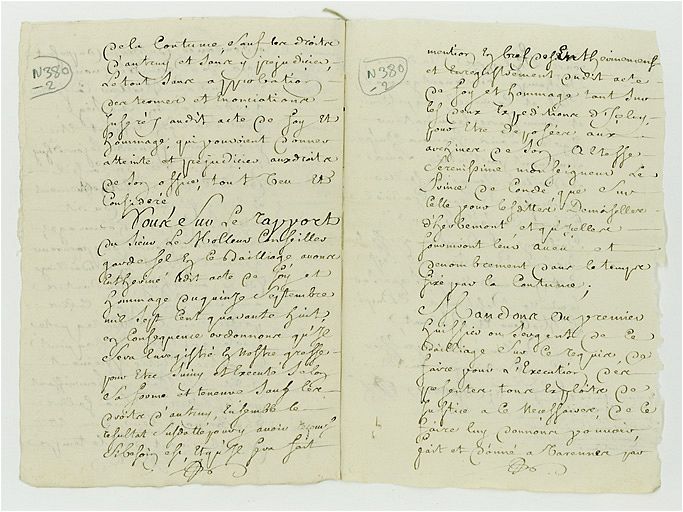 N380
-2
de la Coutume, sauf les droits
d'autruy et sans y prejudicier,
Le tout sans approbation
des termes et Enonciations
Inserés audit acte de foy Et
hommage, qui pouroient donner
atteinte et prejudicier aux droits
de son office, tout Veu Et
Consideré
Nous Sur Le rapport
du Sieur Le Molleur Conseiller
garde sel En ce Bailliage avons
ledit acte de foy et
hommage du quinze Septembre
mil Sept Cent quarante huit
en Consequence ordonnons qu'Il
Sera Enregistré En Nostre greffe
pour Etre Suivy Et Executé Selon
Sa forme et teneur Sauf les
droits d'autruy, Ensemble le
resultat avoir
Si besoin est, Et qu'Il Sera fait
N380
-2
mention En bref de
et Enregistrement dudit acte
de foy et hommage tant Sur
les deux Expeditions d'Iceluy,
pour Etre deposées aux
archives de Son Altesse
Serenissime monseigneur Le
Prince de Condé que Sur
Celle pour lesdittes Demoiselles
d'herbemont et qu'elles
fourniront leur aveu et
denombrement dans le temps
fixé par la Coutume,
Mandons au premier
huissier ou Sergent de Ce
Bailliage Sur Ce requis, de
faire pour l'Execution des
presentes tous Exploits de
Justice a Ce Necessaires, de Ce
faire luy donnons pouvoir,
fait et donné a Varennes par